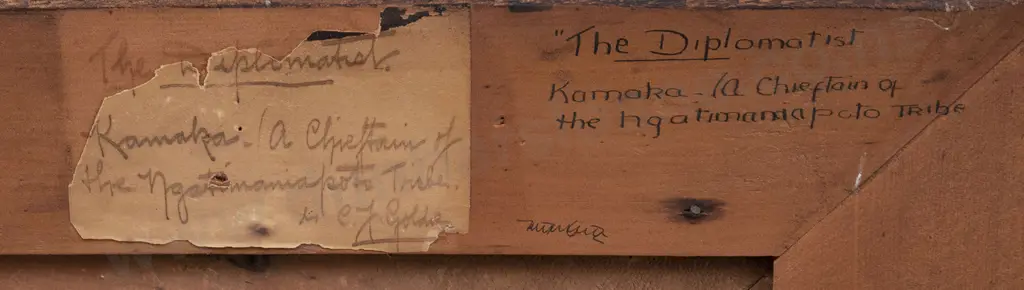 The Diplomatist.
Kamaka - (A Chieftain of
the Ngatimaniapoto Tribe.
C F Goldie
"The Diplomatist
Kamaka - (A Chieftain of
the Ngatimaniapoto Tribe